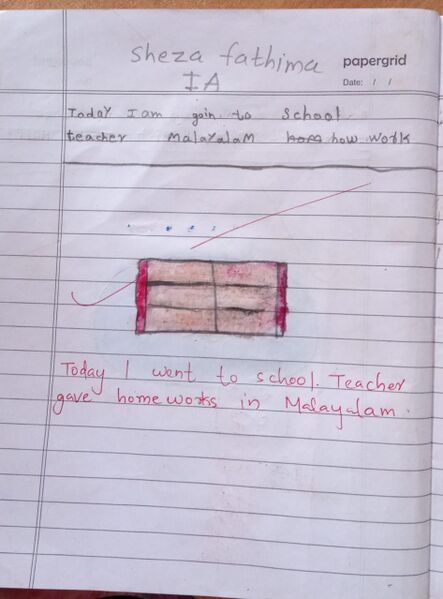 sheza fathima
papergrid
IA
Date: / /
Today I am goin to school
teacher malayalam how work
Today I went to school. Teacher
gave homeworks in Malayalam.